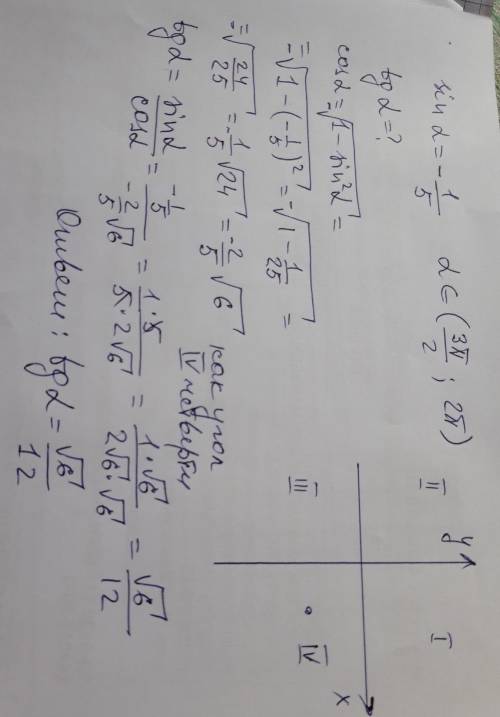 sin α = -1/5   α ∈ (3π/2 ; 2π)
tg α = ?
cos α = -√(1 - sin²α) =
= -√(1 - (-1/5)²) = -√(1 - 1/25) =
= -√(24/25) = -1/5 √24 = -2/5 √6   как угол IV четверти
tg α = sin α / cos α = (-1/5) / (-2/5 √6) = 1·5 / 5·2√6 = 1·√6 / 2√6·√6 = √6/12
Ответ: tg α = √6/12
II y I
x
III IV